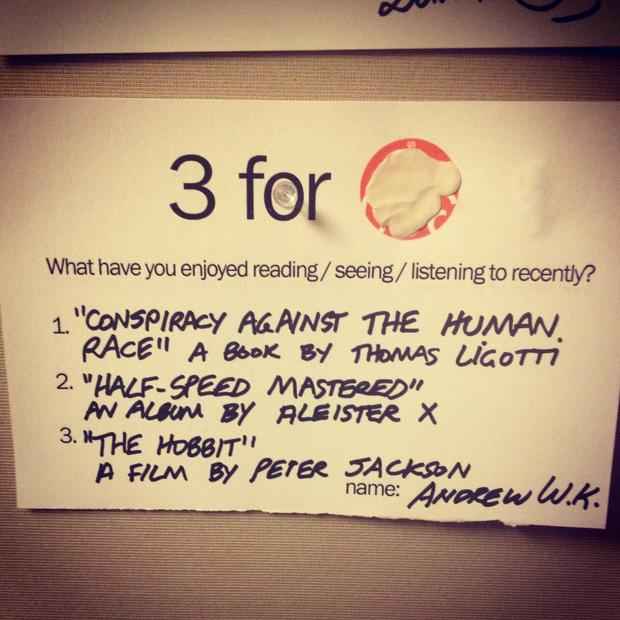 3 for
What have you enjoyed reading / seeing / listening to recently?
1. "CONSPIRACY AGAINST THE HUMAN.
RACE" A BOOK BY THOMAS LIGOTTI
2. "HALF-SPEED MASTERED"
AN ALBUM BY ALEISTER X
3. "THE HOBBIT"
A FILM BY PETER JACKSON
name: ANDREW W.K.